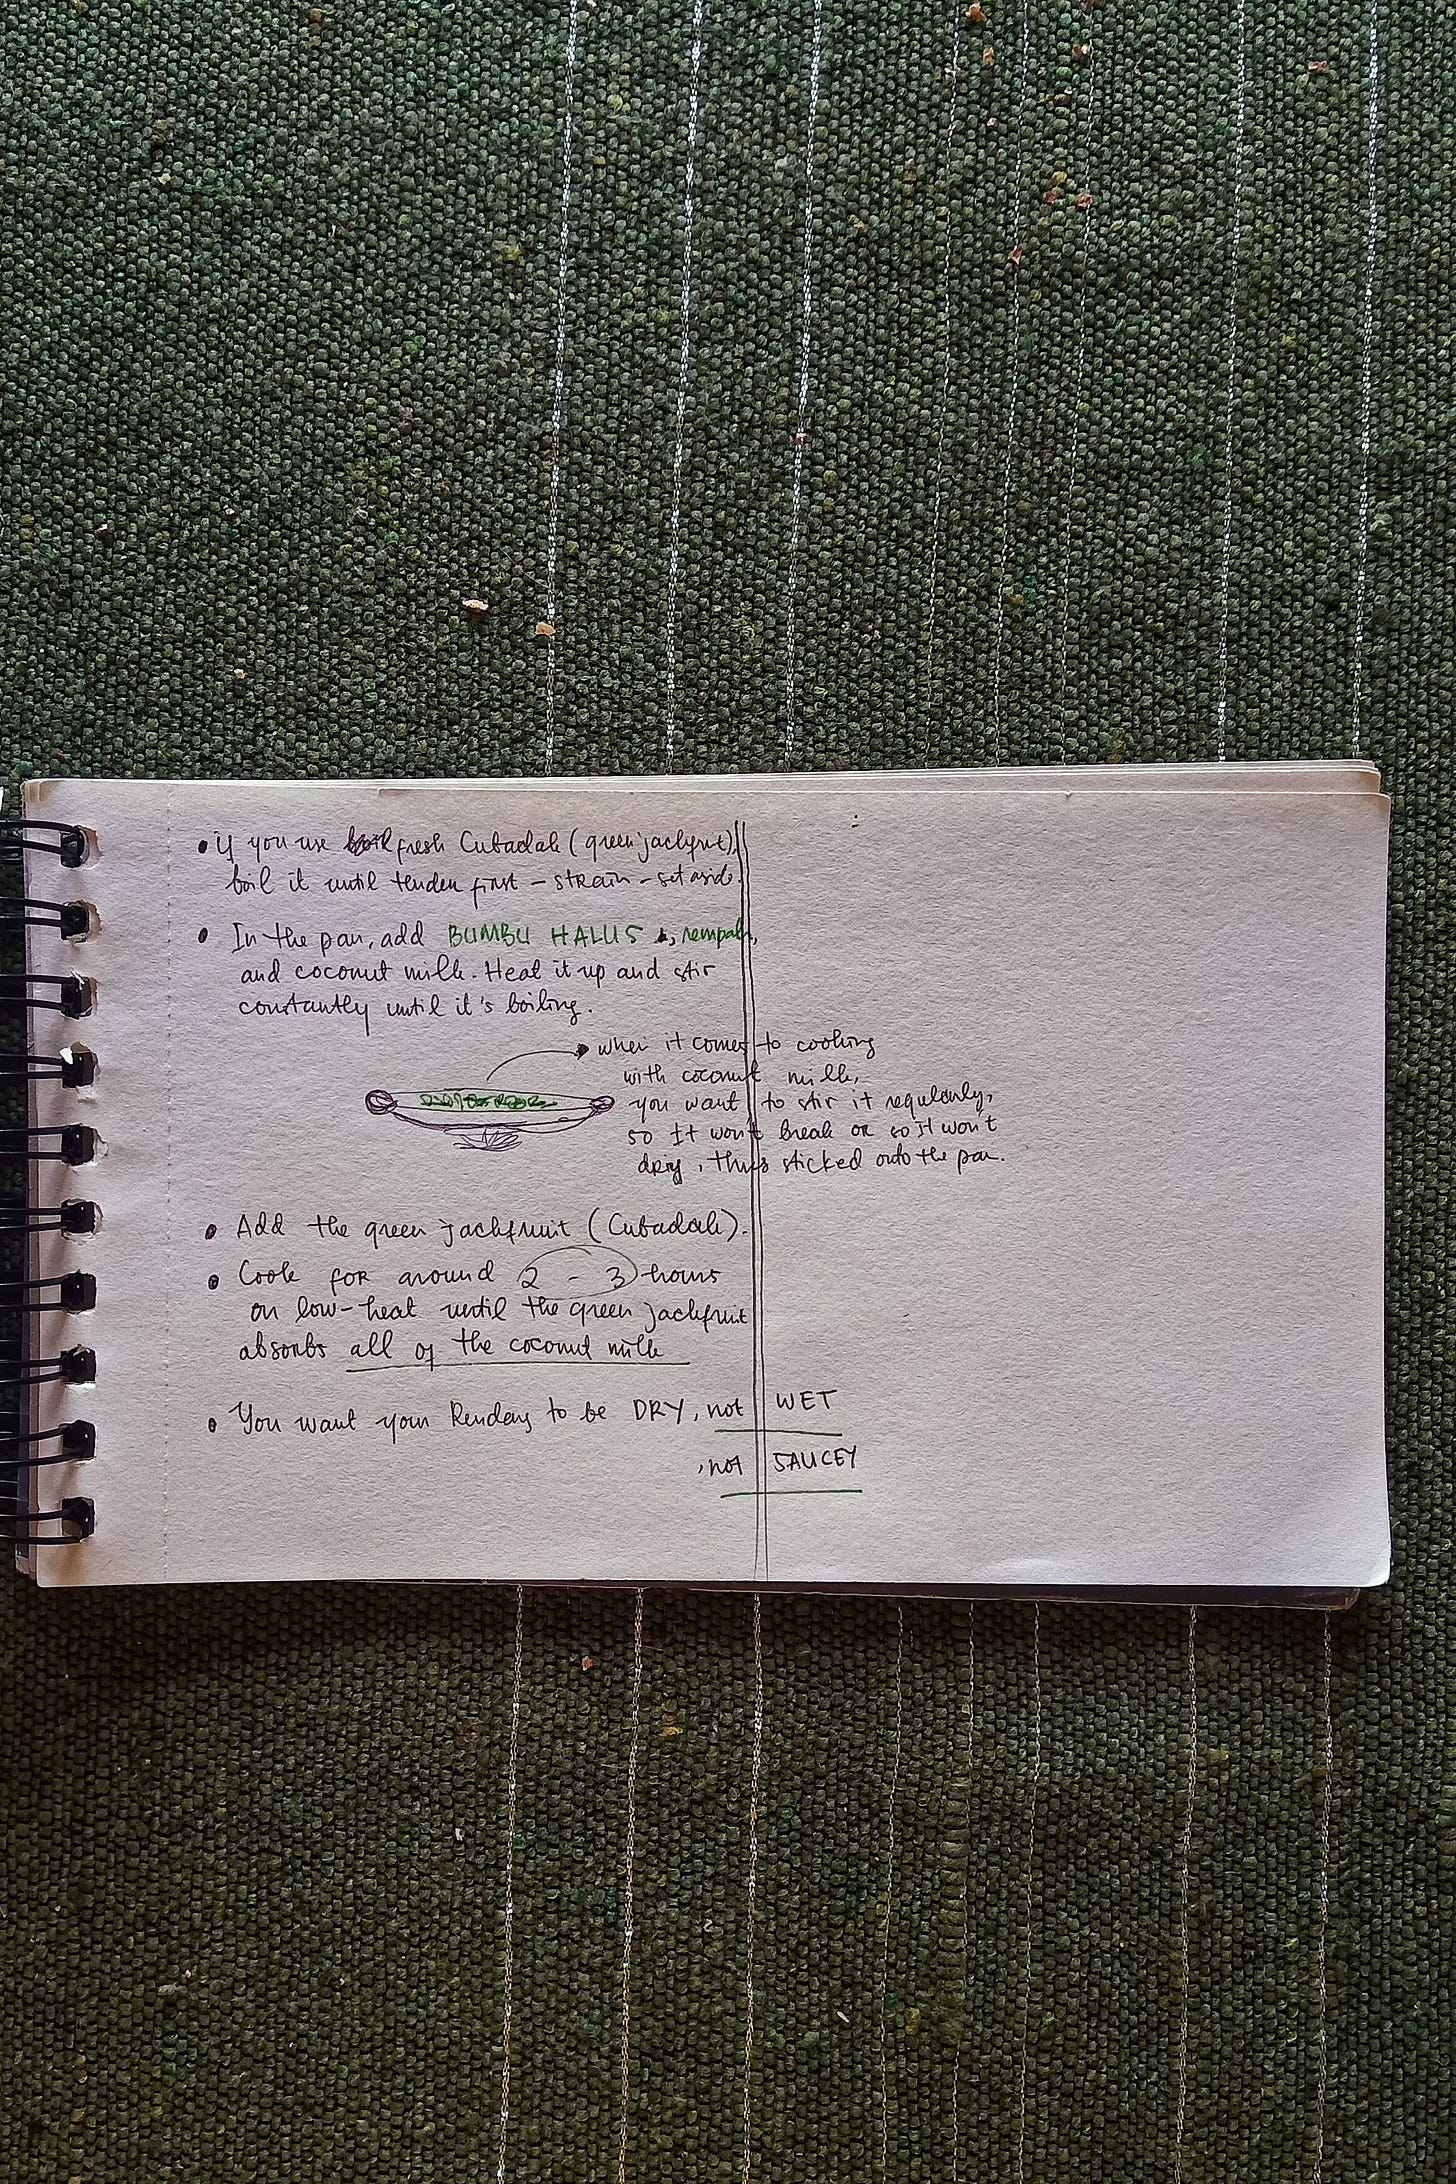 • if you use fresh Cubadak (green jackfruit),
boil it until tender first - strain - set aside.
• In the pan, add BUMBU HALUS, rempah,
and coconut milk. Heat it up and stir
constantly until it's boiling.
when it comes to cooking
with coconut milk,
you want to stir it regularly,
so it won't break or so it won't
dry, thus sticked onto the pan.
• Add the green jackfruit (Cubadak).
• Cook for around 2 - 3 hours
on low-heat until the green jackfruit
absorbs all of the coconut milk
• You want your Rendang to be DRY, not WET
, not SAUCEY